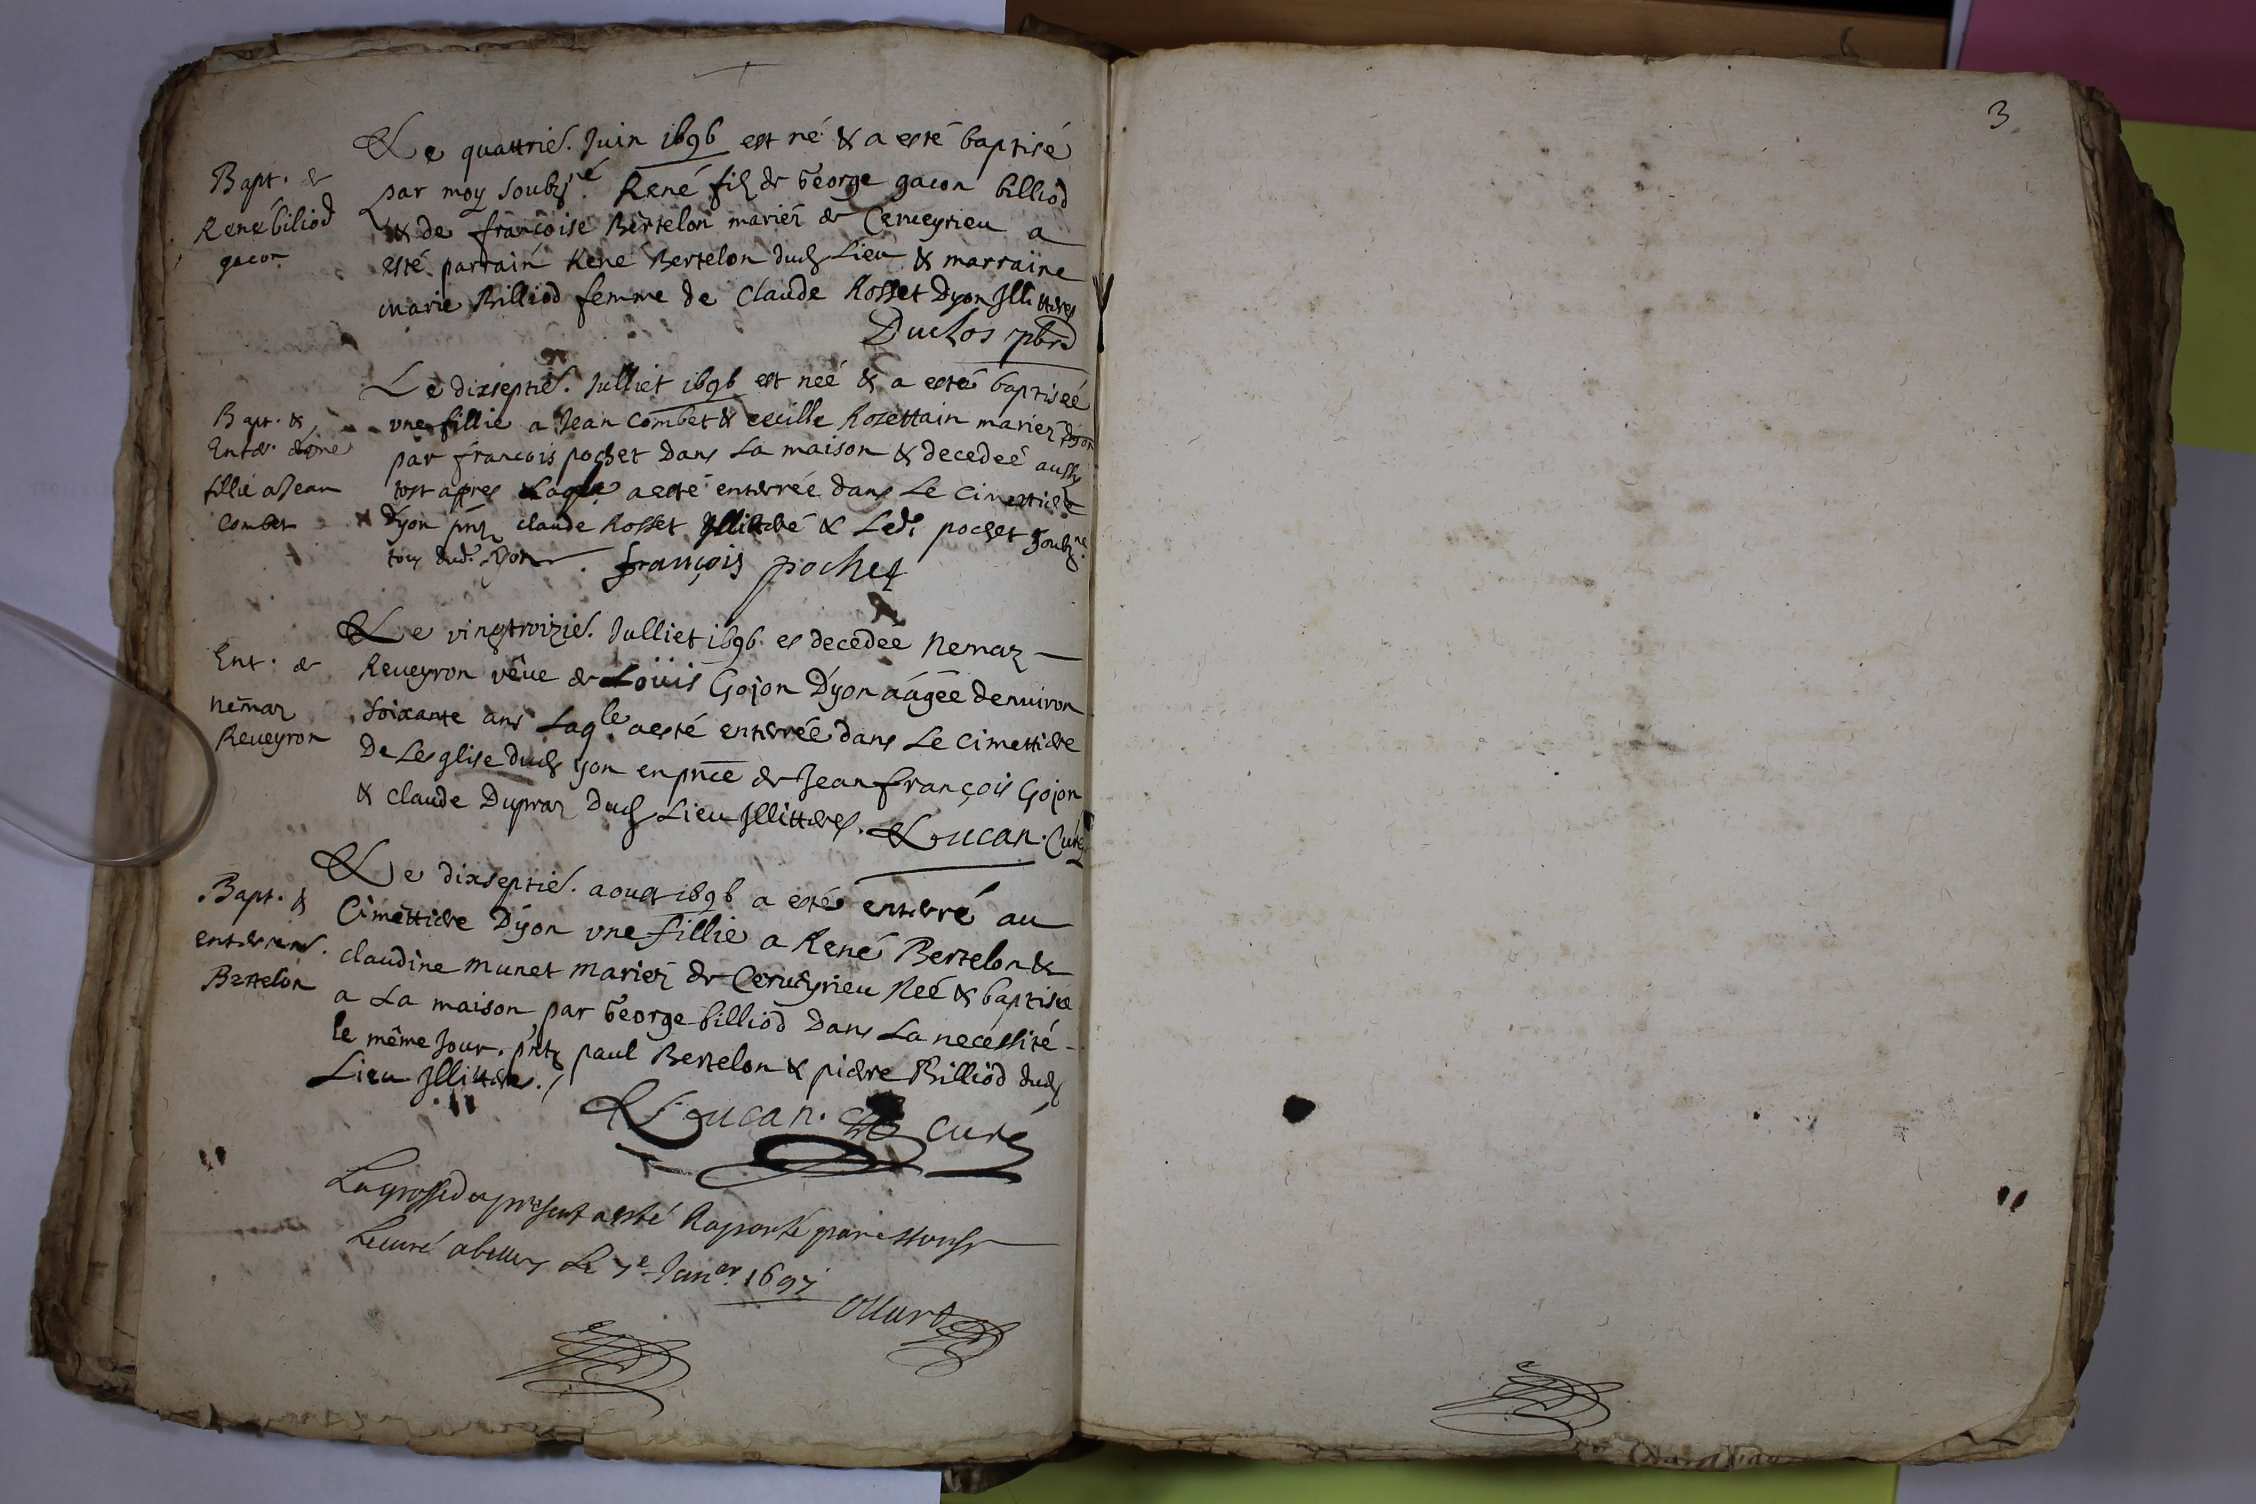 Bapt. de
René biliod
gacon
Le quattrie. Juin 1696 est né & a esté baptisé
par moy soubsné René fils de George gacon billiod
& de françoise Bertelon mariez de Cerveyrieu a
esté parrain René Bertelon duds Lieu & marraine
marie Billiod femme de Claude Rosset Dyon Illitteres
Duclos pbre
Bapt. &
Enter. dune
fillie a Jean
Combet
Le dixseptie. Julliet 1696 est neé & a esté baptiseé
vne fillie a Jean Combet & cecille Rozettain mariez Dyon
par françois pochet Dans La maison & decedeé aussy
tost apres Laqle a esté enterrée dans Le Cimettiere
Dyon pntz claude Rosset Illitteré & Ledt pochet soubzné
tous dud. Dyon. françois pochet
Ent. de
nemaz
Reueyron
Le vingtroizie. Julliet 1696. es decedée Nemaz
Reueyron vêue de Loüis Gojon Dyon aágée denuiron
soixante ans Laqle a esté enterrée dans Le cimettiere
De Lesglise duds yon en pnce de Jean françois Gojon
& claude Dupraz Duds Lieu Illitteres. Lucan. Curé
Bapt. &
enterrem.
Bertelon
Le dixseptie. aoust 1696 a esté enterré au
Cimettiere Dyon vne fillie a René Bertelon &
claudine munet mariez de Cerueyrieu Neé & baptisée
a La maison par George billiod Dans La necessité
le même Jour. pntz paul Bertelon & pierre Billiod duds
Lieu Illittere./
Lucan. Curé
La grosse du present a esté Raporté par Monsr
Le curé a belley Le 7e Janer 1697
3